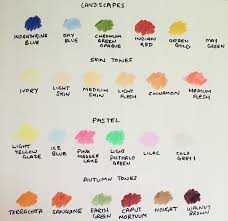 LANDSCAPES
INDANTHRENE BLUE
SKY BLUE
CHROMIUM GREEN OPAQUE
INDIAN RED
GREEN GOLD
MAY GREEN
SKIN TONES
IVORY
LIGHT SKIN
MEDIUM SKIN
LIGHT FLESH
CINNAMON
MEDIUM FLESH
PASTEL
LIGHT YELLOW GLAZE
ICE BLUE
PINK MADDER LAKE
LIGHT PHTHALO GREEN
LILAC
COLD GREY I
AUTUMN TONES
TERRACOTTA
SANGUINE
EARTH GREEN
CAPUT MORTUUM
NOUGAT
WALNUT BROWN